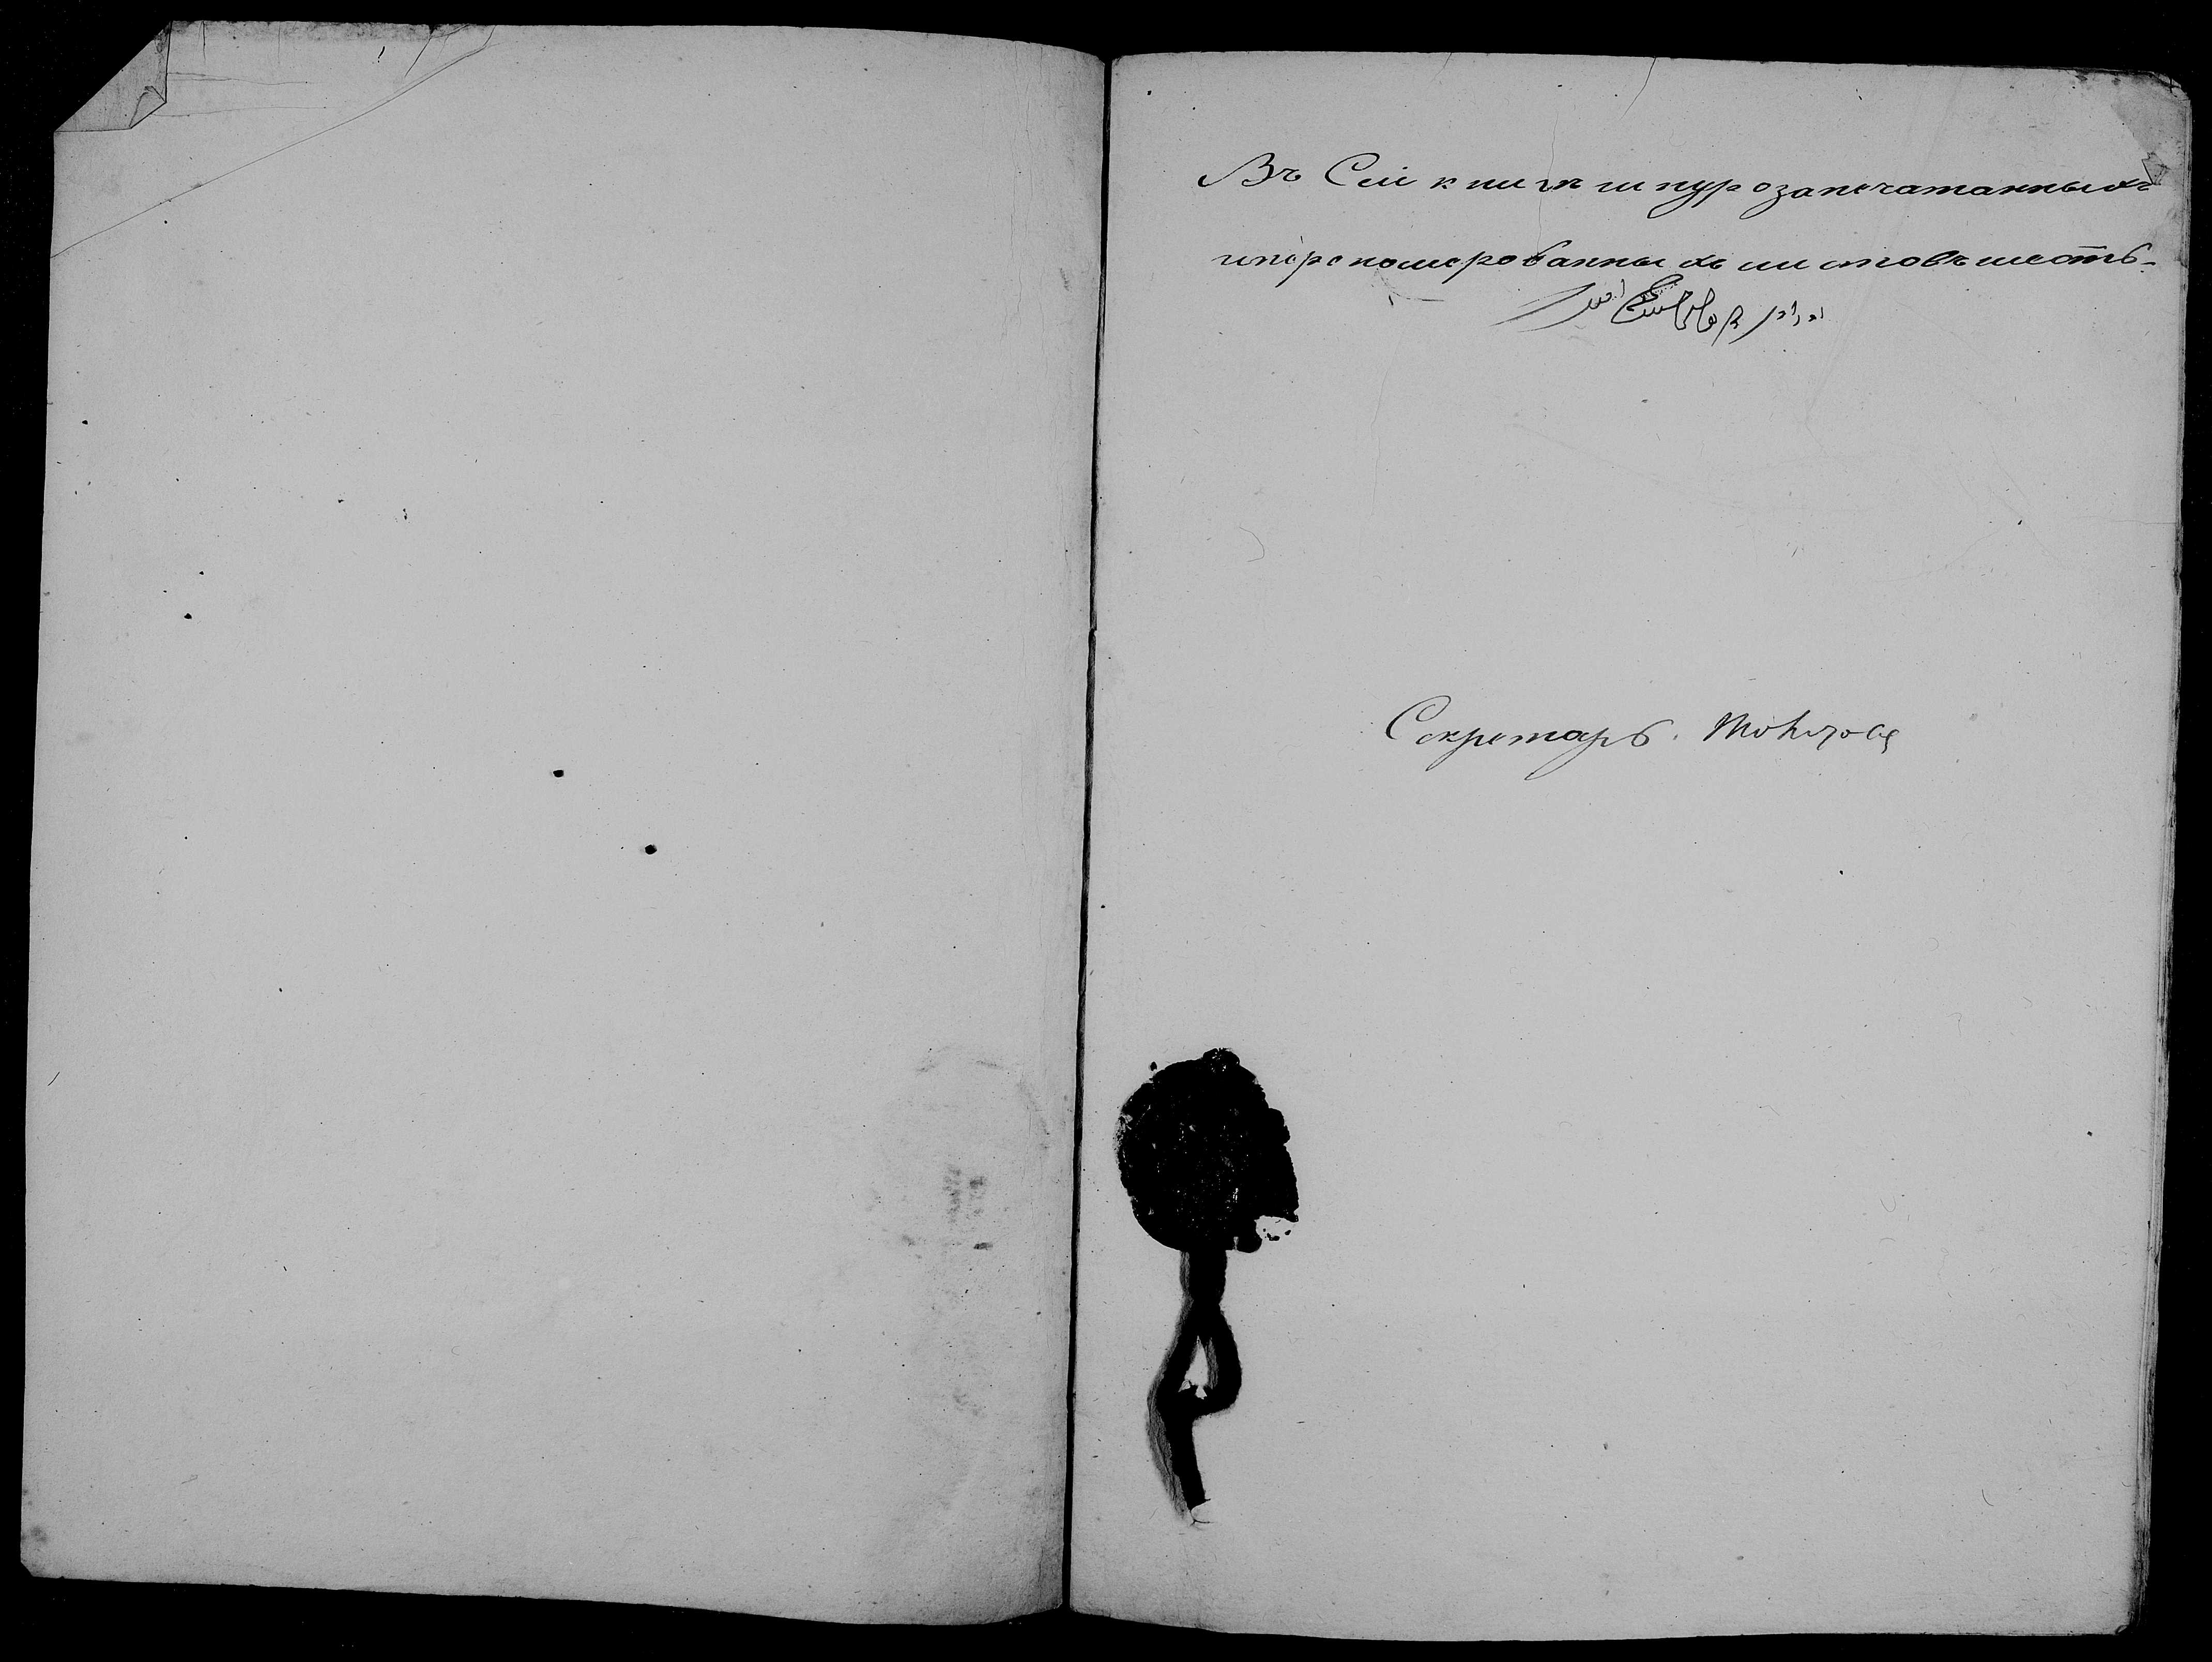 Въ Сей книгѣ шнурозапечатанныхъ
и перономерованныхъ листовъ шесть.
Секретарь